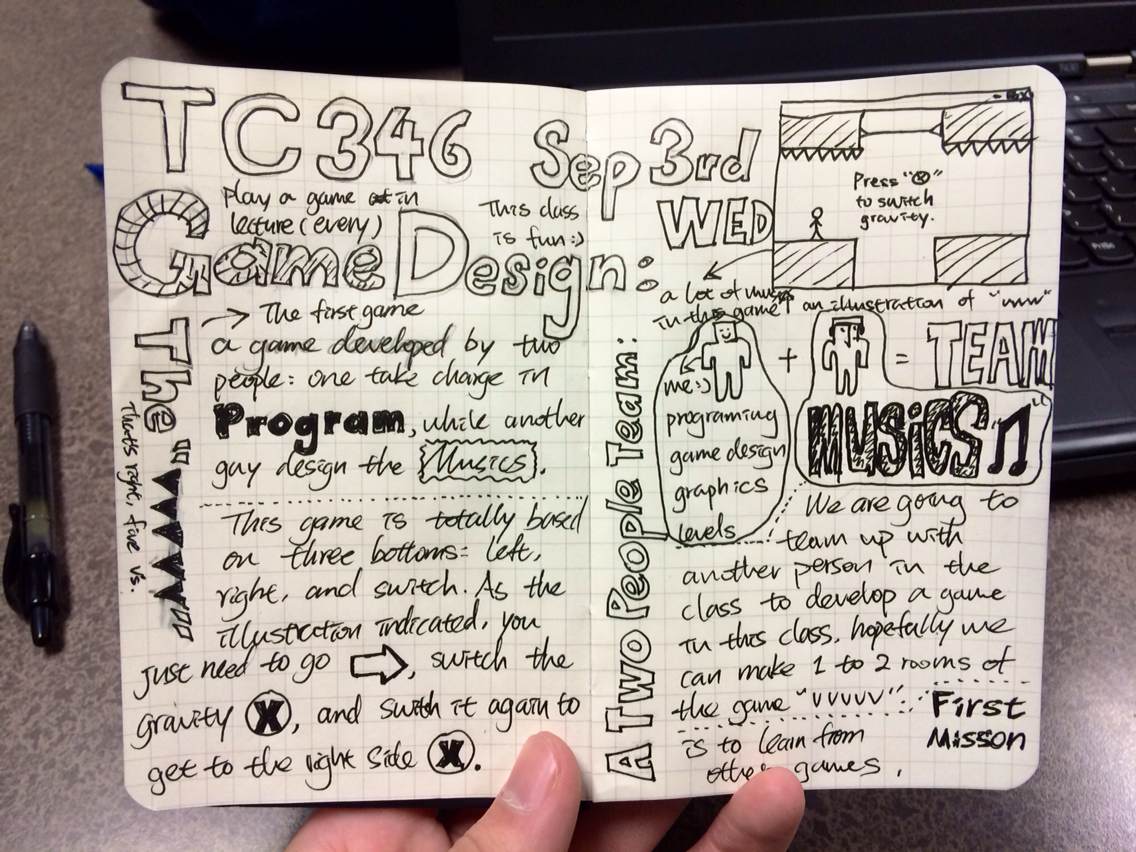 TC 346 Sep 3rd
WED
Play a game at in
lecture (every)
This class
is fun :)
Game Design:
The "VVVVVV"
That's right, five vs.
The first game
a game developed by two
people: one take charge in
Program, while another
guy design the Musics.
This game is totally based
on three bottoms: left,
right, and switch. As the
illustration indicated, you
just need to go ⇨, switch the
gravity X, and swith it again to
get to the right side X.
Press "X"
to switch
gravity.
a lot of musics
in this game!
an illustration of "vvvvv"
A Two People Team:
me :)
programing
game design
graphics
levels
+
= TEAM
MUSICS
We are going to
team up with
another person in the
class to develop a game
in this class, hopefully we
can make 1 to 2 rooms of
the game "VVVVV".
First
Misson
is to learn from
other games.